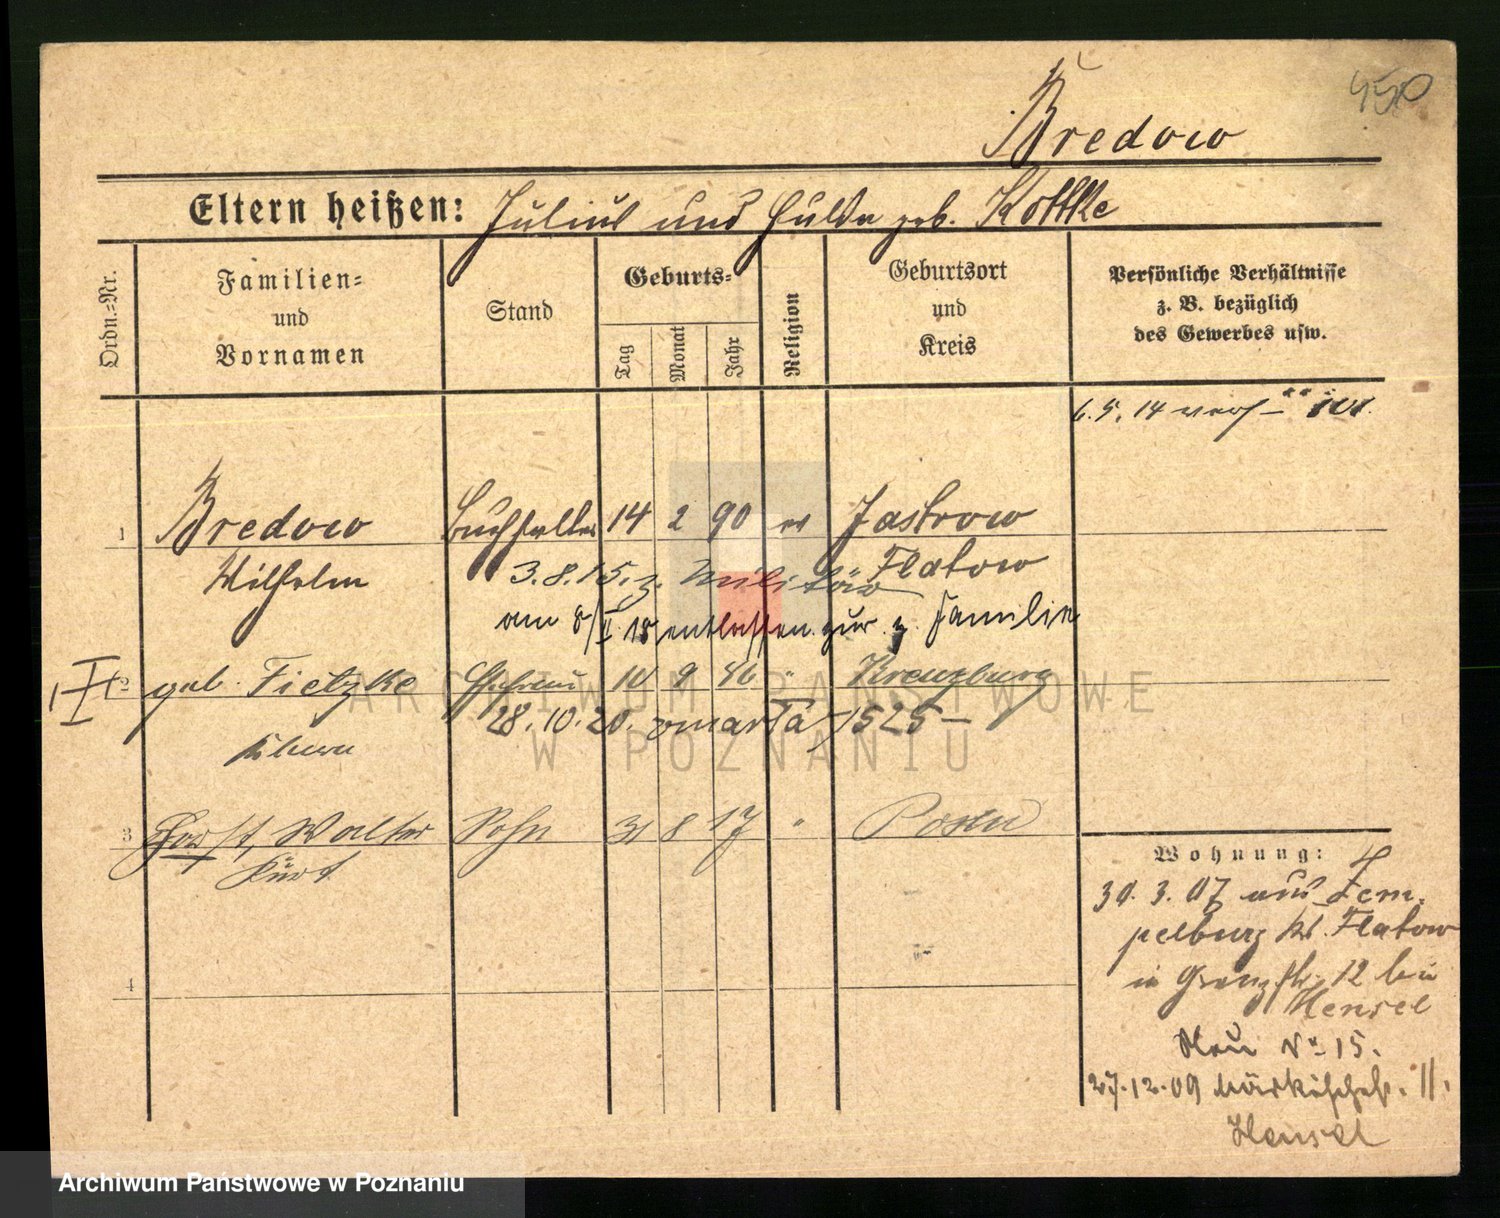 450
Bredow
Eltern heißen: Julius und Hulda geb. Kottke
Ordn.-Nr.
Familien-
und
Vornamen
Stand
Geburts-
Tag
Monat
Jahr
Religion
Geburtsort
und
Kreis
Persönliche Verhältnisse
z. B. bezüglich
des Gewerbes usw.
6. 5. 14
1 Bredow Buchhalter 14 2 90 ev Jastrow
Wilhelm Flatow
3.8.15. z. Militär
am 8/II 18 entlassen zur. z. Familie
2 geb. Fietzke Ehefrau 10 9 86 " Kreuzburg
28.10.20. 1525-
3 Horst, Walter Sohn 31 8 17 " Posen
Kurt
4
Wohnung:
30. 3. 07 aus Zem-
pelburg Kr. Flatow
in Grenzstr. 12 bei
Hensel
Neu No 15.
27.12.09 Märkischestr. 11.
Hensel
ARCHIWUM PAŃSTWOWE
W POZNANIU
Archiwum Państwowe w Poznaniu